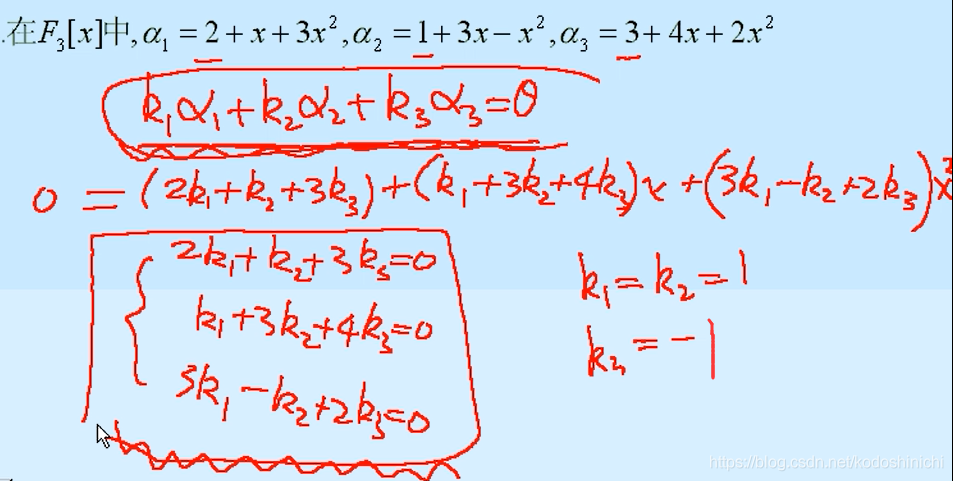 .在F₃[x]中,α₁ = 2 + x + 3x²,α₂ = 1 + 3x − x²,α₃ = 3 + 4x + 2x²
k₁α₁+k₂α₂+k₃α₃=θ
0 = (2k₁+k₂+3k₃)+(k₁+3k₂+4k₃)x+(3k₁-k₂+2k₃)x²
2k₁+k₂+3k₃=0
k₁+3k₂+4k₃=0
3k₁-k₂+2k₃=0
k₁=k₂=1
k₃=-1
https://blog.csdn.net/kodoshinichi